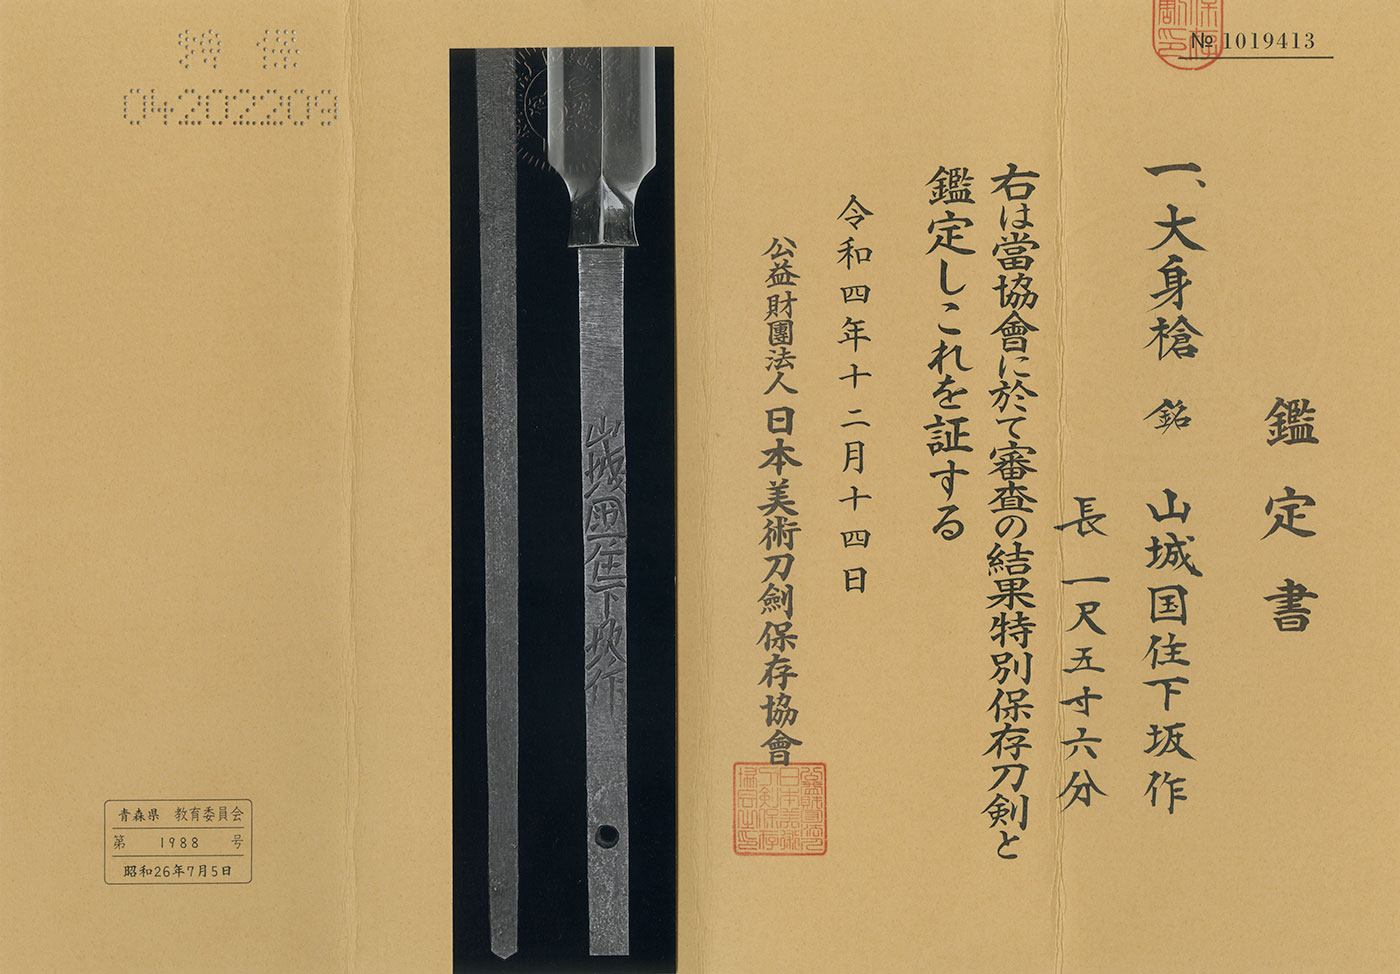 № 1019413
鑑定書
一、大身槍 銘 山城国住下坂作
長 一尺五寸六分
右は當協會に於て審査の結果特別保存刀剣と
鑑定しこれを証する
令和四年十二月十四日
公益財團法人 日本美術刀劍保存協會
山城国住下坂作
特 保
04202209
青森県 教育委員会
第 1988 号
昭和26年7月5日